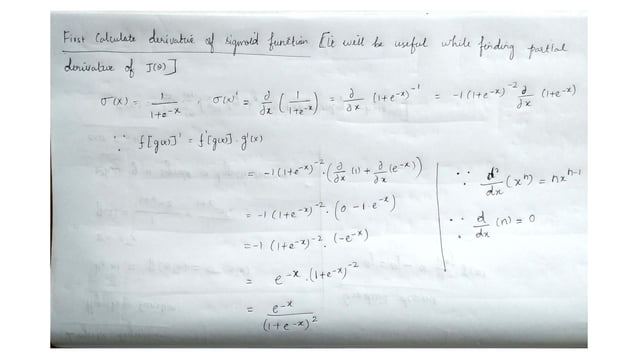 First Calculate derivative of sigmoid function [It will be useful while finding partial
derivative of J(θ)]
σ(x) = 1/(1+e^-x) , σ(x)' = ∂/∂x (1/(1+e^-x)) = ∂/∂x (1+e^-x)^-1 = -1(1+e^-x)^-2 ∂/∂x (1+e^-x)
∵ f[g(x)]' = f'[g(x)] · g'(x)
= -1(1+e^-x)^-2 · (∂/∂x (1) + ∂/∂x (e^-x))
= -1(1+e^-x)^-2 · (0 - 1·e^-x)
= -1 (1+e^-x)^-2 · (-e^-x)
= e^-x · (1+e^-x)^-2
= e^-x/(1+e^-x)^2
∵ d/dx (x^n) = nx^n-1
∵ d/dx (n) = 0